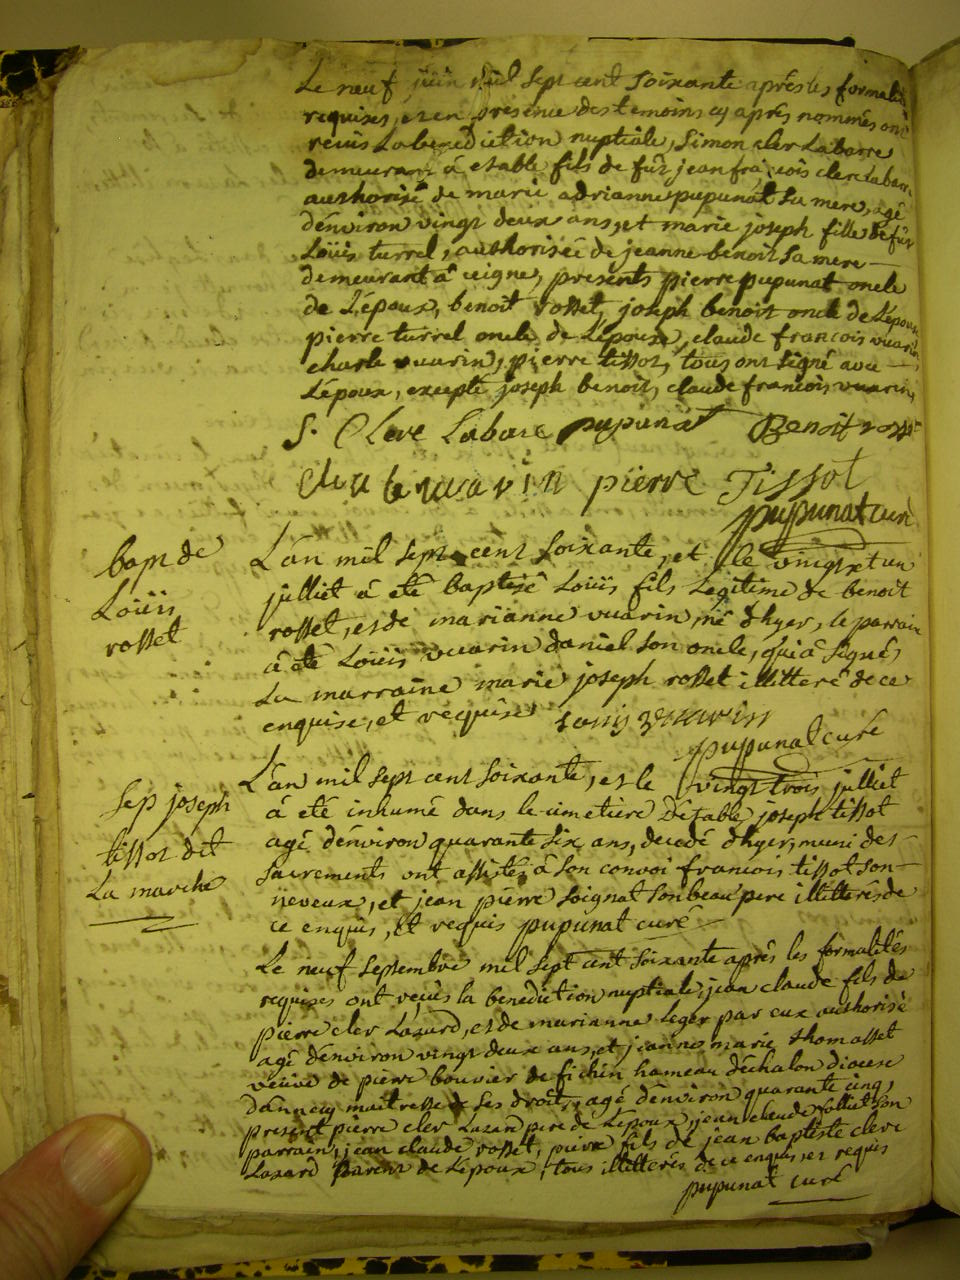 Le neuf juin mil sept cent soixante aprés les formalit
requises, et en presence des temoins cy aprés nommés ont
reçus La benediction nuptiale, Simon cler Labarre
demeurant à etable fils de fût jean françois clerc labarre
authorisé de marie adrianne pupunat sa mere, agé
d'environ vingt deux ans, et marie joseph fille de fût
Loüis turrel, authorisée de jeanne benoit sa mere
demeurant à ceigne, presents pierre pupunat oncle
de L'époux, benoit rosset, joseph benoit oncle de L'épouse
pierre turrel oncle de L'épouse, claude françois vuarin,
charle vuarin, pierre tissot, tous ont signé avec
L'époux, excepté joseph benoit, claude francois vuarin,
S. Clerc Labare pupunat Benoit rosset
vuarin pierre Tissot
pupunat curé
bapt de
Loüis
rosset
L'an mil sept cent soixante, et le vingt et un
julliet à été baptisé Loüis fils Légitime de benoit
rosset, et de marianne vuarin, né d'hyer, le parrain
à été Loüis vuarin daniel son oncle, qui à signé,
La marraine marie joseph rosset illitteré de ce
enquise, et requise Louis vuarin
pupunat curé
sep joseph
tissot dit
La marche
L'an mil sept cent soixante, et le vingt trois julliet
à été inhumé dans le cimetiere d'étable joseph tissot
agé d'environ quarante six ans, decedé d'hyer, muni des
sacrements ont assistés à son convoi francois tissot son
neveux, et jean pierre soignat son beau pere illitterés de
ce enquis, et requis pupunat curé
Le neuf septembre mil sept cent soixante aprés les formalités
requises ont reçus la benediction nuptiale, jean claude fils de
pierre cler Lazard, et de marianne Leger par eux authorisé
agé d'environ vingt deux ans, et jeanne marie thomasset
veuve de pierre bouvier de fichin hameau d'échalon diocese
d'annecy maitresse de ses droits, agé d'environ quarante cinq,
present pierre cler Lazard pere de L'époux, jean claude folliet son
parrain, jean claude rosset, pierre fils de jean baptiste clerc
Lazard parent de L'époux, tous illitterés de ce enquis, et requis
pupunat curé